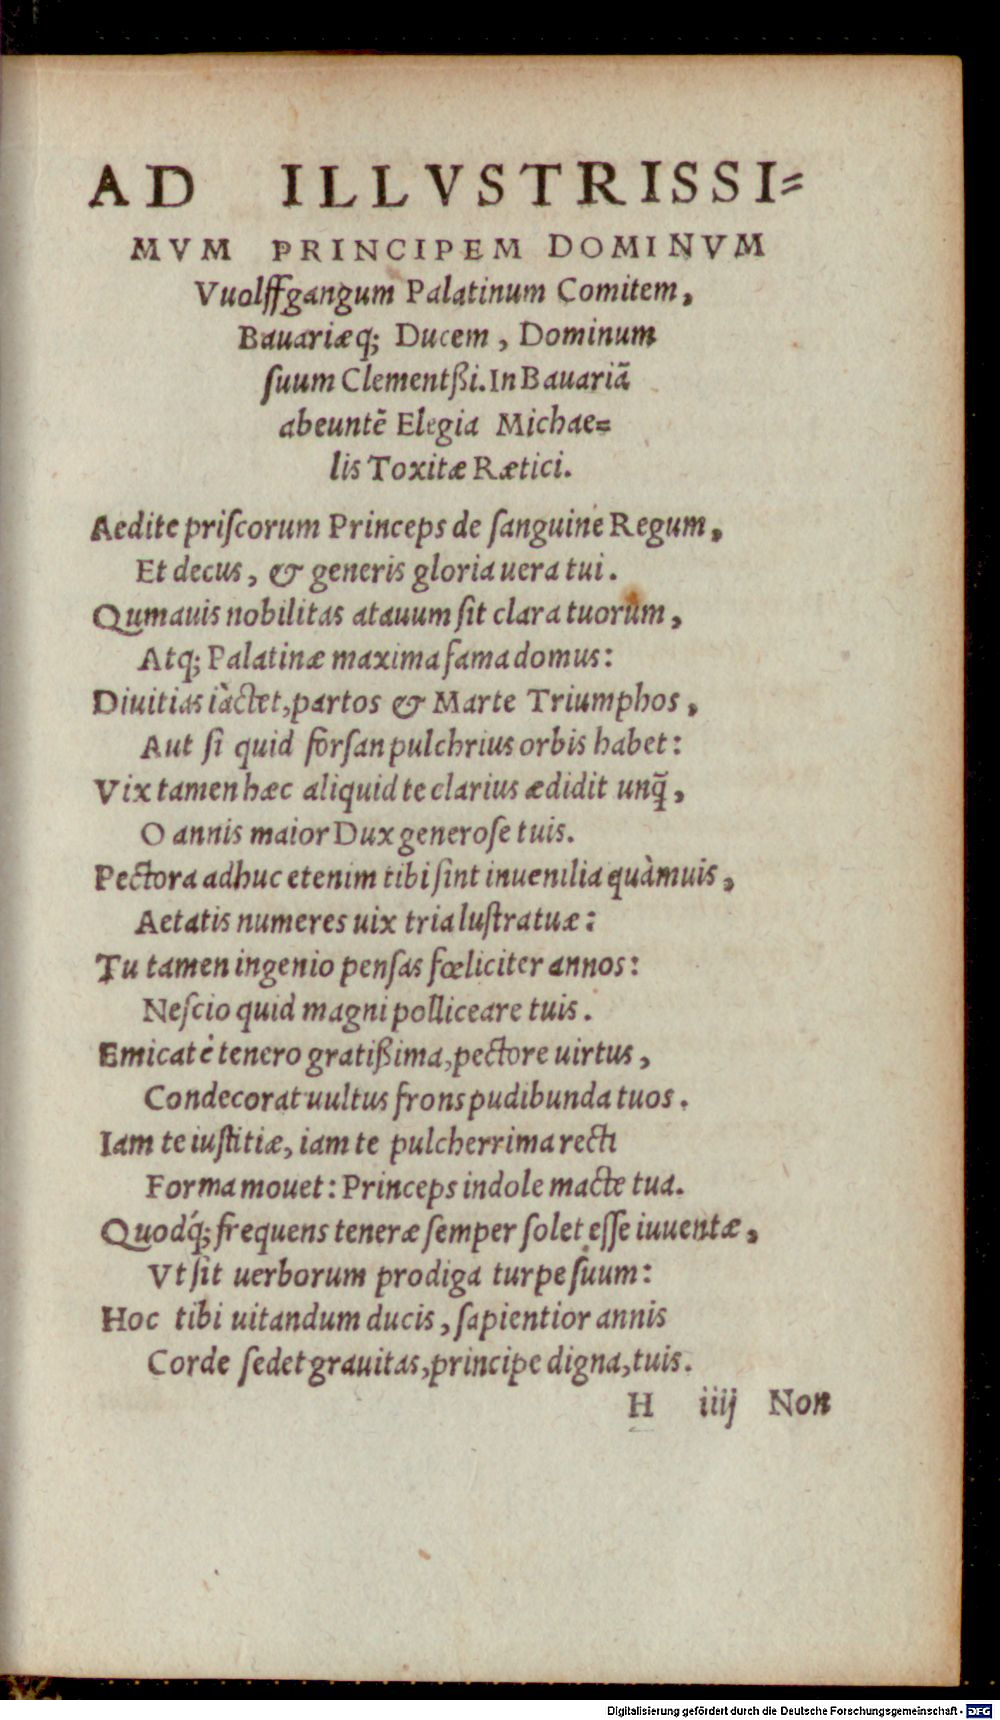 AD ILLVSTRISSI=
MVM PRINCIPEM DOMINVM
Vuolffgangum Palatinum Comitem,
Bauariæq; Ducem, Dominum
ſuum Clementßi. In Bauariã
abeuntẽ Elegia Michae=
lis Toxitæ Rætici.
Aedite priſcorum Princeps de ſanguine Regum,
Et decus, & generis gloria uera tui.
Qumauis nobilitas atauum ſit clara tuorum,
Atq; Palatinæ maxima fama domus:
Diuitias iàctet, partos & Marte Triumphos,
Aut ſi quid forſan pulchrius orbis habet:
Vix tamen hæc aliquid te clarius ædidit unq̃,
O annis maior Dux generoſe tuis.
Pectora adhuc etenim tibi ſint iuuenilia quàmuis,
Aetatis numeres uix tria luſtra tuæ:
Tu tamen ingenio penſas fœliciter annos:
Neſcio quid magni polliceare tuis.
Emicat è tenero gratißima, pectore uirtus,
Condecorat uultus frons pudibunda tuos.
Iam te iuſtitiæ, iam te pulcherrima recti
Forma mouet: Princeps indole macte tua.
Quodq́; frequens teneræ ſemper ſolet eſſe iuuentæ,
Vt ſit uerborum prodiga turpe ſuum:
Hoc tibi uitandum ducis, ſapientior annis
Corde ſedet grauitas, principe digna, tuis.
H iiij Non
Digitalisierung gefördert durch die Deutsche Forschungsgemeinschaft - DFG